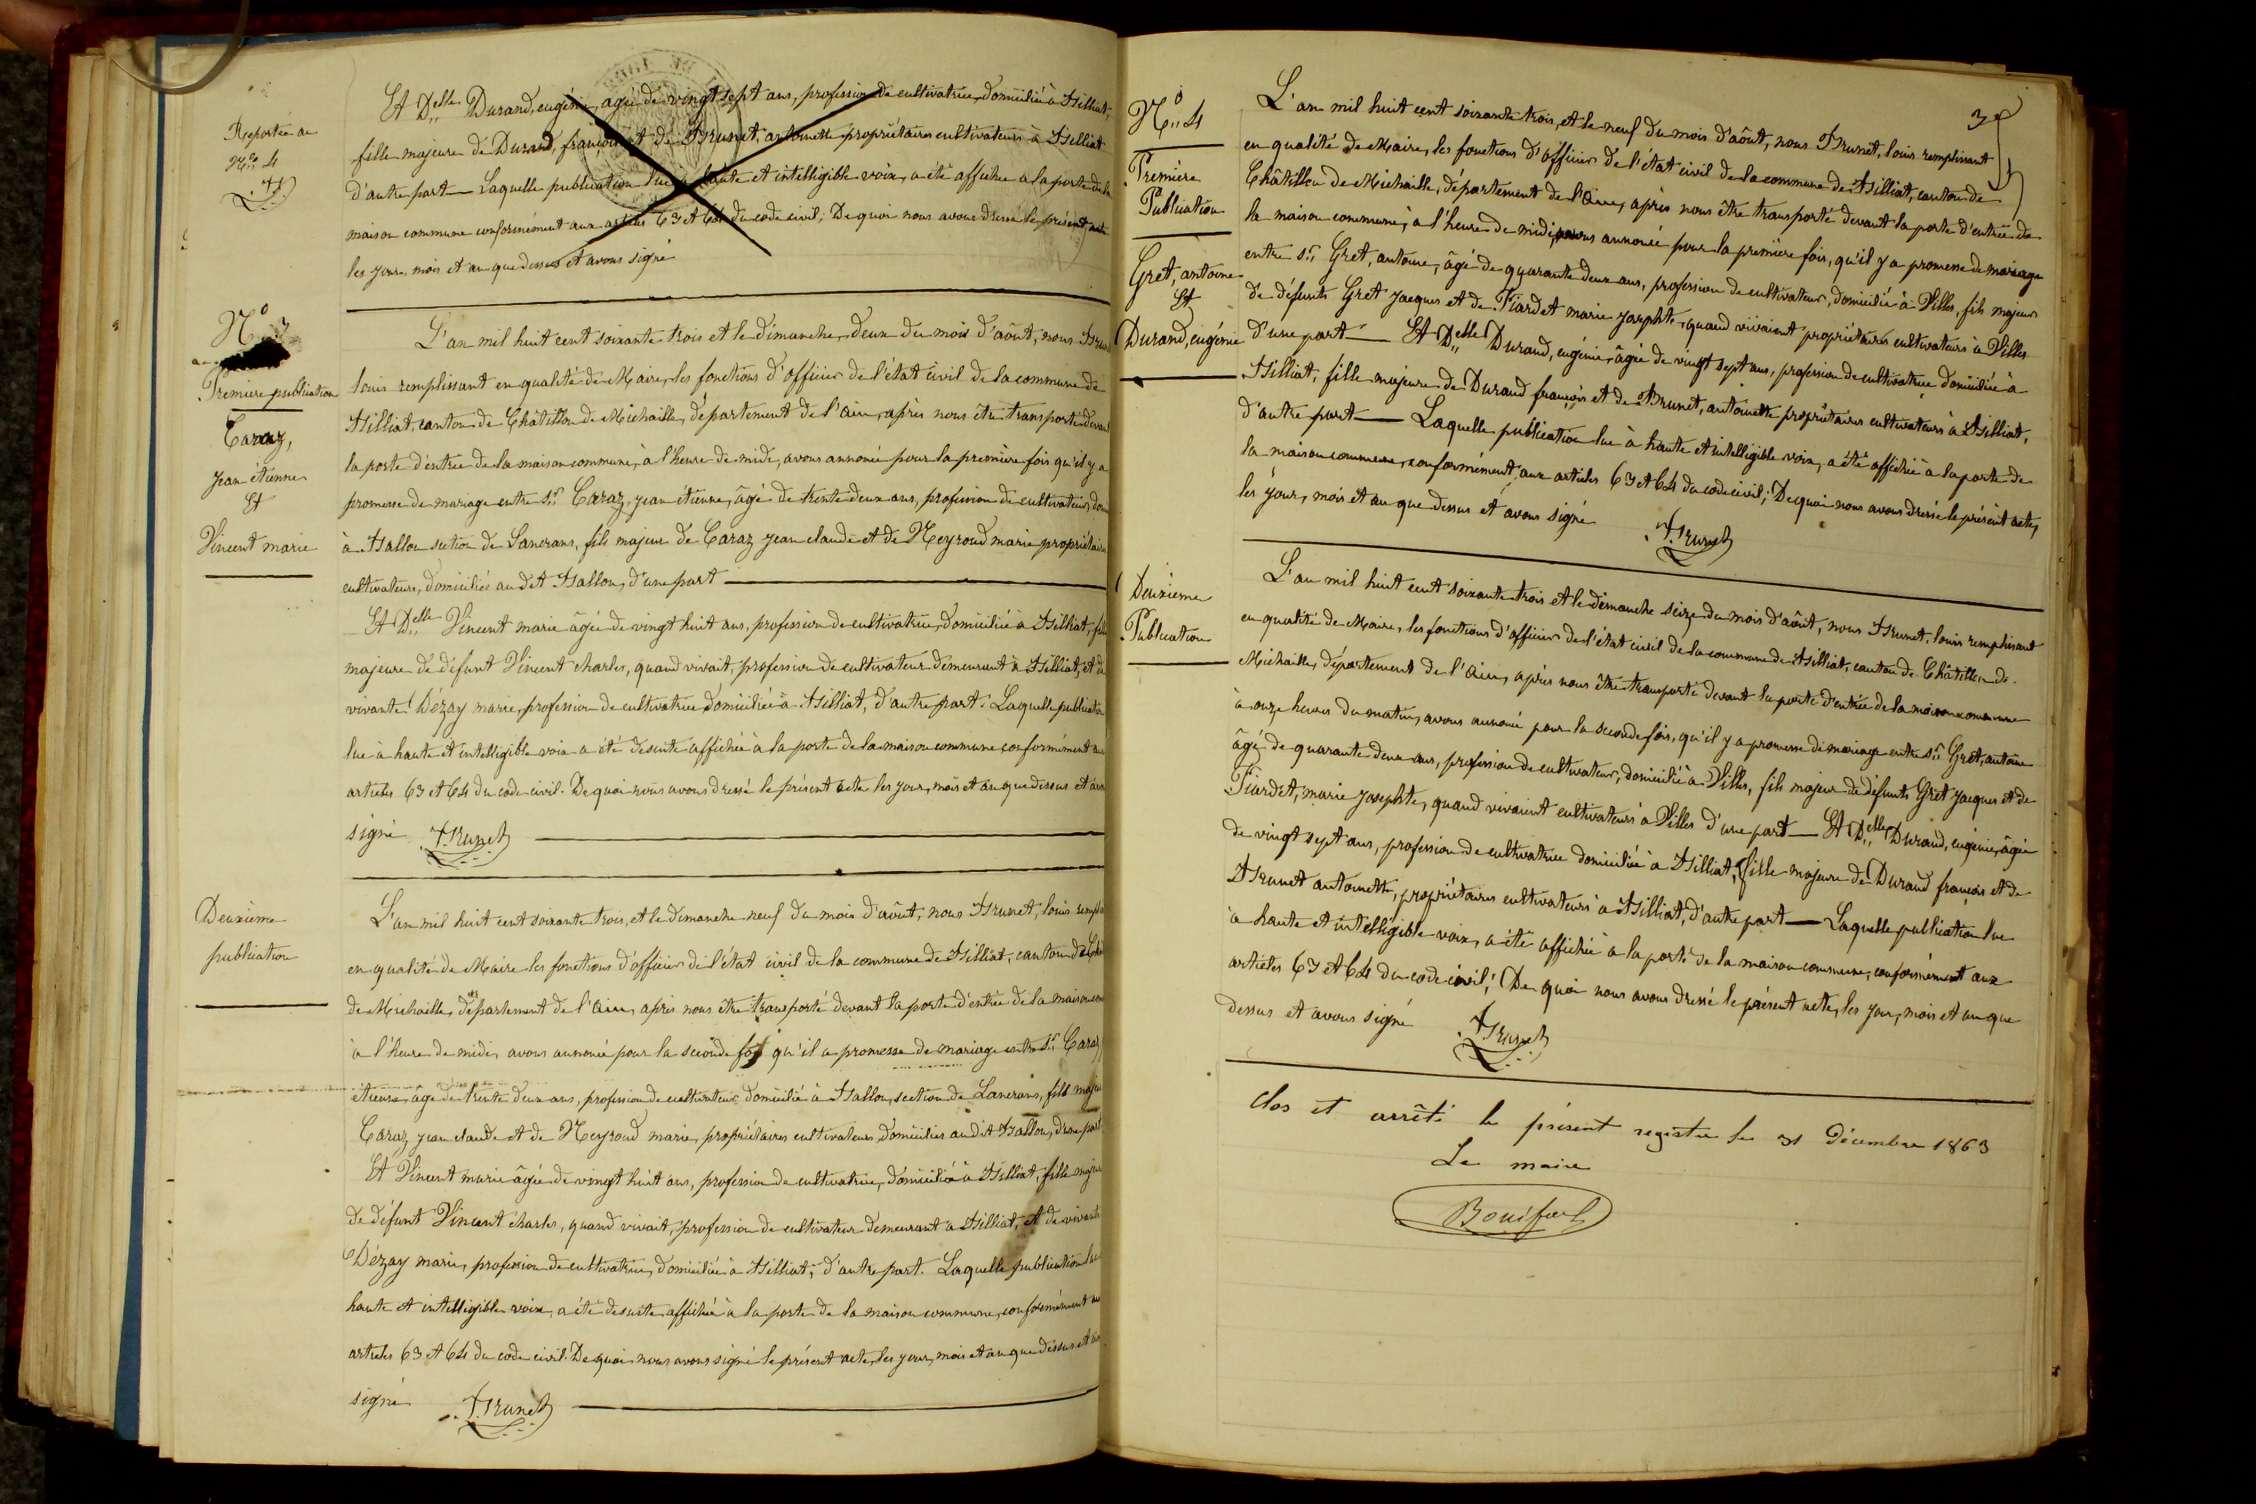 Reportée au
N.º 4
Et Delle Durand, eugénie, agée de vingt sept ans, profession de cultivatrice, domiciliée à Billiat,
fille majeure de Durand, françois et de Brunet, antoinette propriétaires cultivateurs à Billiat
d'autre part — Laquelle publication lue à haute et intelligible voix, a été affichée a la porte de la
maison commune conformément aux articles 63 et 64 du code civil; De quoi nous avons dressé le présent acte
les jour, mois et an que dessus et avons signé
Nº 3
Premiere publication
Caraz,
Jean étienne
Et
Vincent marie
L'an mil huit cent soixante trois et le dimanche, deux du mois d'aôut, nous Brunet
louis remplissant en qualité de Maire, les fonctions d'officier de l'état civil de la commune de
Billiat, canton de Châtillon de Michaille, département de l'ain, après nous être transporté devant
la porte d'entrée de la maison commune, à l'heure de midi, avons annoncé pour la première fois qu'il y a
promesse de mariage entre sr. Caraz, jean étienne, âgé de trente deux ans, profession de cultivateur, dom
à Ballon section de Lancrans, fils majeur de Caraz jean claude et de Neyroud marie propriétaires
cultivateurs, domiciliés au dit Ballon, d'une part
Et Delle Vincent marie âgée de vingt huit ans, profession de cultivatrice, domiciliée à Billiat, fille
majeure de défunt Vincent charles, quand vivait, profession de cultivateur demeurant à Billiat, et de
vivante Dézay marie, profession de cultivatrice domiciliée à Billiat, d'autre part. Laquelle publication
lue à haute et intelligible voix a été desuite affichée à la porte de la maison commune conformément aux
articles 63 et 64 du code civil. De quoi nous avons dressé le présent acte les jour, mois et an que dessus et avons
signé Brunet
Deuxième
publication
L'an mil huit cent soixante trois, et le dimanche neuf du mois d'août, nous Brunet, louis rempliss
en qualité de Maire les fonctions d'officier de l'état civil de la commune de Billiat, canton de Châ
de Michaille, département de l'ain, après nous être transporté devant la porte d'entrée de la maison com
à l'heure de midi, avons annoncé pour la seconde fois qu'il a promesse de mariage entre sr. Caraz
étienne, âgé de trente deux ans, profession de cultivateur domicilié à Ballon, section de Lancrans, fils majeur
Caraz jean claude et de Neyroud marie, propriétaires cultivateurs domiciliés au dit Ballon, d'une part
Et Vincent marie âgée de vingt huit ans, profession de cultivatrice, domiciliée à Billiat, fille majeure
de défunt Vincent charles, quand vivait, profession de cultivateur demeurant à Billiat, et de vivante
Dézay marie, profession de cultivatrice, domiciliée à Billiat, d'autre part. Laquelle publication lue
haute et intelligible voix, a été desuite affichée à la porte de la maison commune, conformément aux
articles 63 et 64 du code civil. De quoi nous avons signé le présent acte, les jour, mois et an que dessus et avons
signé Brunet
3
Nº 4
Première
Publication
Gret, antoine
Et
Durand, eugénie
L'an mil huit cent soixante trois, et le neuf du mois d'août, nous Brunet, louis remplissant
en qualité de Maire, les fonctions d'officier de l'état civil de la commune de Billiat, canton de
Châtillon de Michaille, département de l'ain, après nous être transporté devant la porte d'entrée de
la maison commune, à l'heure de midi, avons annoncé pour la première fois, qu'il y a promesse de mariage
entre sr. Gret, antoine, âgé de quarante deux ans, profession de cultivateur, domicilié à Villes, fils majeur
de défunts Gret Jacques et de Tiardet marie josephte, quand vivaient propriétaires cultivateurs à Villes
d'une part — Et Delle Durand, eugénie, âgée de vingt sept ans, profession de cultivatrice domiciliée à
Billiat, fille majeure de Durand françois et de Brunet, antoinette propriétaires cultivateurs à Billiat,
d'autre part — Laquelle publication lue à haute et intelligible voix, a été affichée à la porte de
la maison commune, conformément aux articles 63 et 64 du code civil; De quoi nous avons dressé le présent acte,
les jour, mois et an que dessus et avons signé
Brunet
Deuxième
Publication
L'an mil huit cent soixante trois et le dimanche seize du mois d'août, nous Brunet, louis remplissant
en qualité de Maire, les fonctions d'officier de l'état civil de la commune de Billiat, canton de Châtillon de
Michaille, département de l'ain, après nous être transporté devant la porte d'entrée de la maison commune
à onze heures du matin, avons annoncé pour la seconde fois, qu'il y a promesse de mariage entre sr. Gret, antoine
âgé de quarante deux ans, profession de cultivateur, domicilié à Villes, fils majeur de défunts Gret Jacques et de
Tiardet, marie josephte, quand vivaient cultivateurs à Villes d'une part — Et Delle Durand, eugénie, âgée
de vingt sept ans, profession de cultivatrice domiciliée à Billiat, fille majeure de Durand françois et de
Brunet antoinette, propriétaires cultivateurs à Billiat, d'autre part — Laquelle publication lue
à haute et intelligible voix, a été affichée à la porte de la maison commune, conformément aux
articles 63 et 64 du code civil; De quoi nous avons dressé le présent acte, les jour, mois et an que
dessus et avons signé Brunet
Clos et arrêté le présent registre le 31 décembre 1863
Le maire
Bonifax